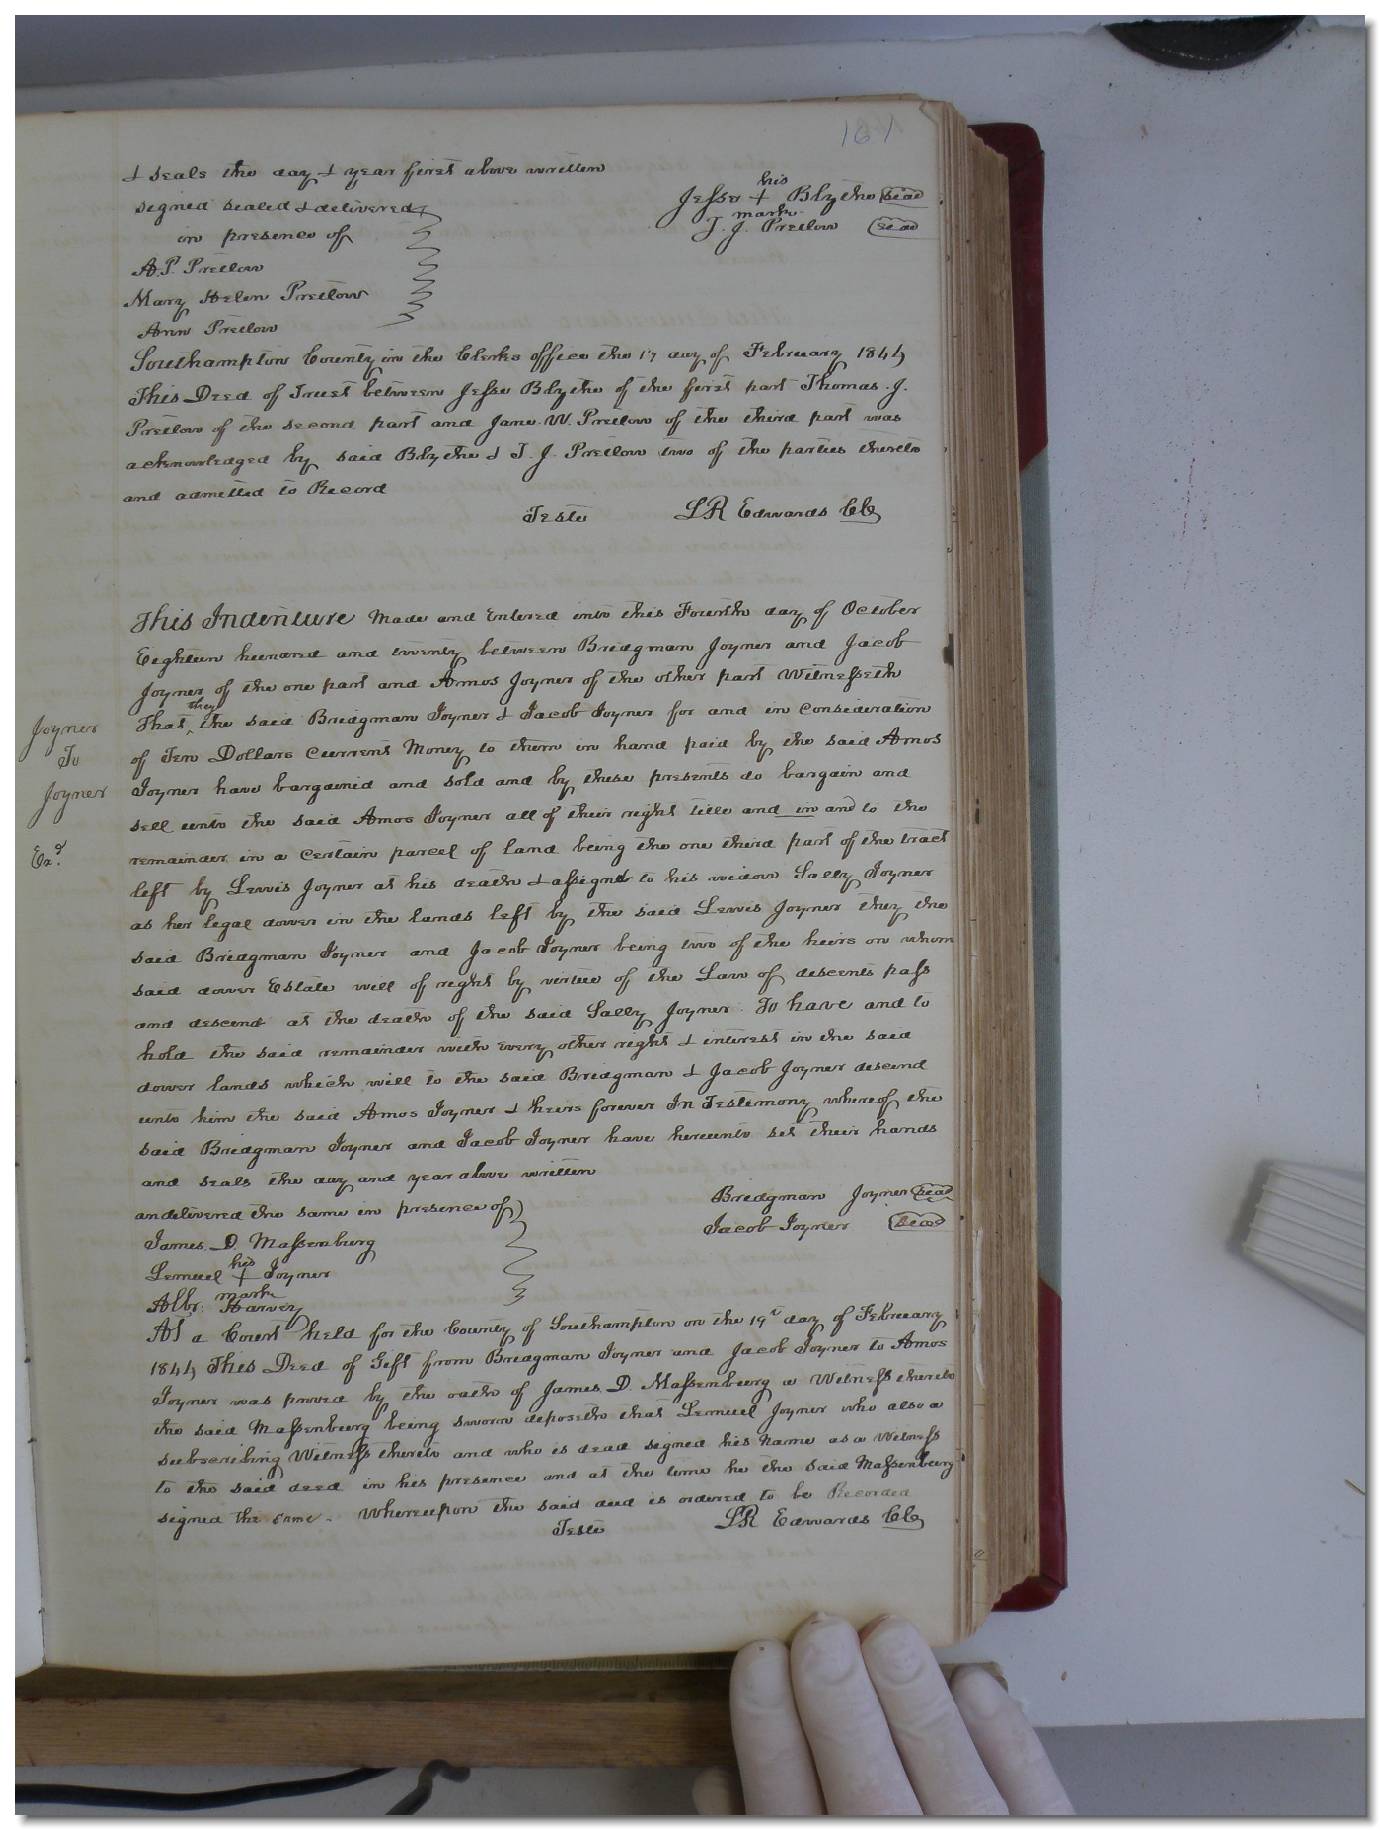 161
& seals the day & year first above written
signed sealed & delivered
in presence of
his
Jesse + Blythe seal
mark
T. J. Pretlow seal
A. P. Pretlow
Mary Helen Pretlow
Ann Pretlow
Southampton County in the Clerks office the 17 day of February 1844
This Deed of Trust between Jesse Blythe of the first part Thomas. J.
Pretlow of the second part and Jane. W. Pretlow of the third part was
acknowledged by said Blythe & T. J. Pretlow two of the parties thereto
and admitted to Record
Teste LR Edwards CC
This Indenture Made and Entered into this Fourth day of October
Eighteen hundred and twenty between Bridgman Joyner and Jacob
Joyner of the one part and Amos Joyner of the other part Witnesseth
That they the said Bridgman Joyner & Jacob Joyner for and in Consideration
of Ten Dollars Current Money to them in hand paid by the said Amos
Joyner have bargained and sold and by these presents do bargain and
sell unto the said Amos Joyner all of their right title and in and to the
remainder in a Certain parcel of land being the one third part of the tract
left by Lewis Joyner at his death & assignd to his widow Sally Joyner
as her legal dower in the lands left by the said Lewis Joyner they the
said Bridgman Joyner and Jacob Joyner being two of the heirs on whom
said dower Estate will of right by virtue of the Law of descents pass
and descend at the death of the said Sally Joyner To have and to
hold the said remainder with every other right & interest in the said
dower lands which will to the said Bridgman & Jacob Joyner descend
unto him the said Amos Joyner & heirs forever In Testimony whereof the
said Bridgman Joyner and Jacob Joyner have hereunto set their hands
and seals the day and year above written
Joyner
To
Joyner
Exd.
andelivered the same in presence of
Bridgman Joyner seal
Jacob Joyner seal
James. D. Massenburg
his
Lemuel + Joyner
mark
Albr: Harvey
At a Court held for the County of Southampton on the 19th day of February
1844 This Deed of Gift from Bridgman Joyner and Jacob Joyner to Amos
Joyner was proved by the oath of James. D. Massenburg a Witness thereto
the said Massenburg being sworn deposeth that Lemuel Joyner who also a
subscribing Witness thereto and who is dead signed his name as a Witness
to the said deed in his presence and at the time he the said Massenburg
signed the same. Whereupon the said deed is ordered to be Recorded
Teste LR Edwards CC